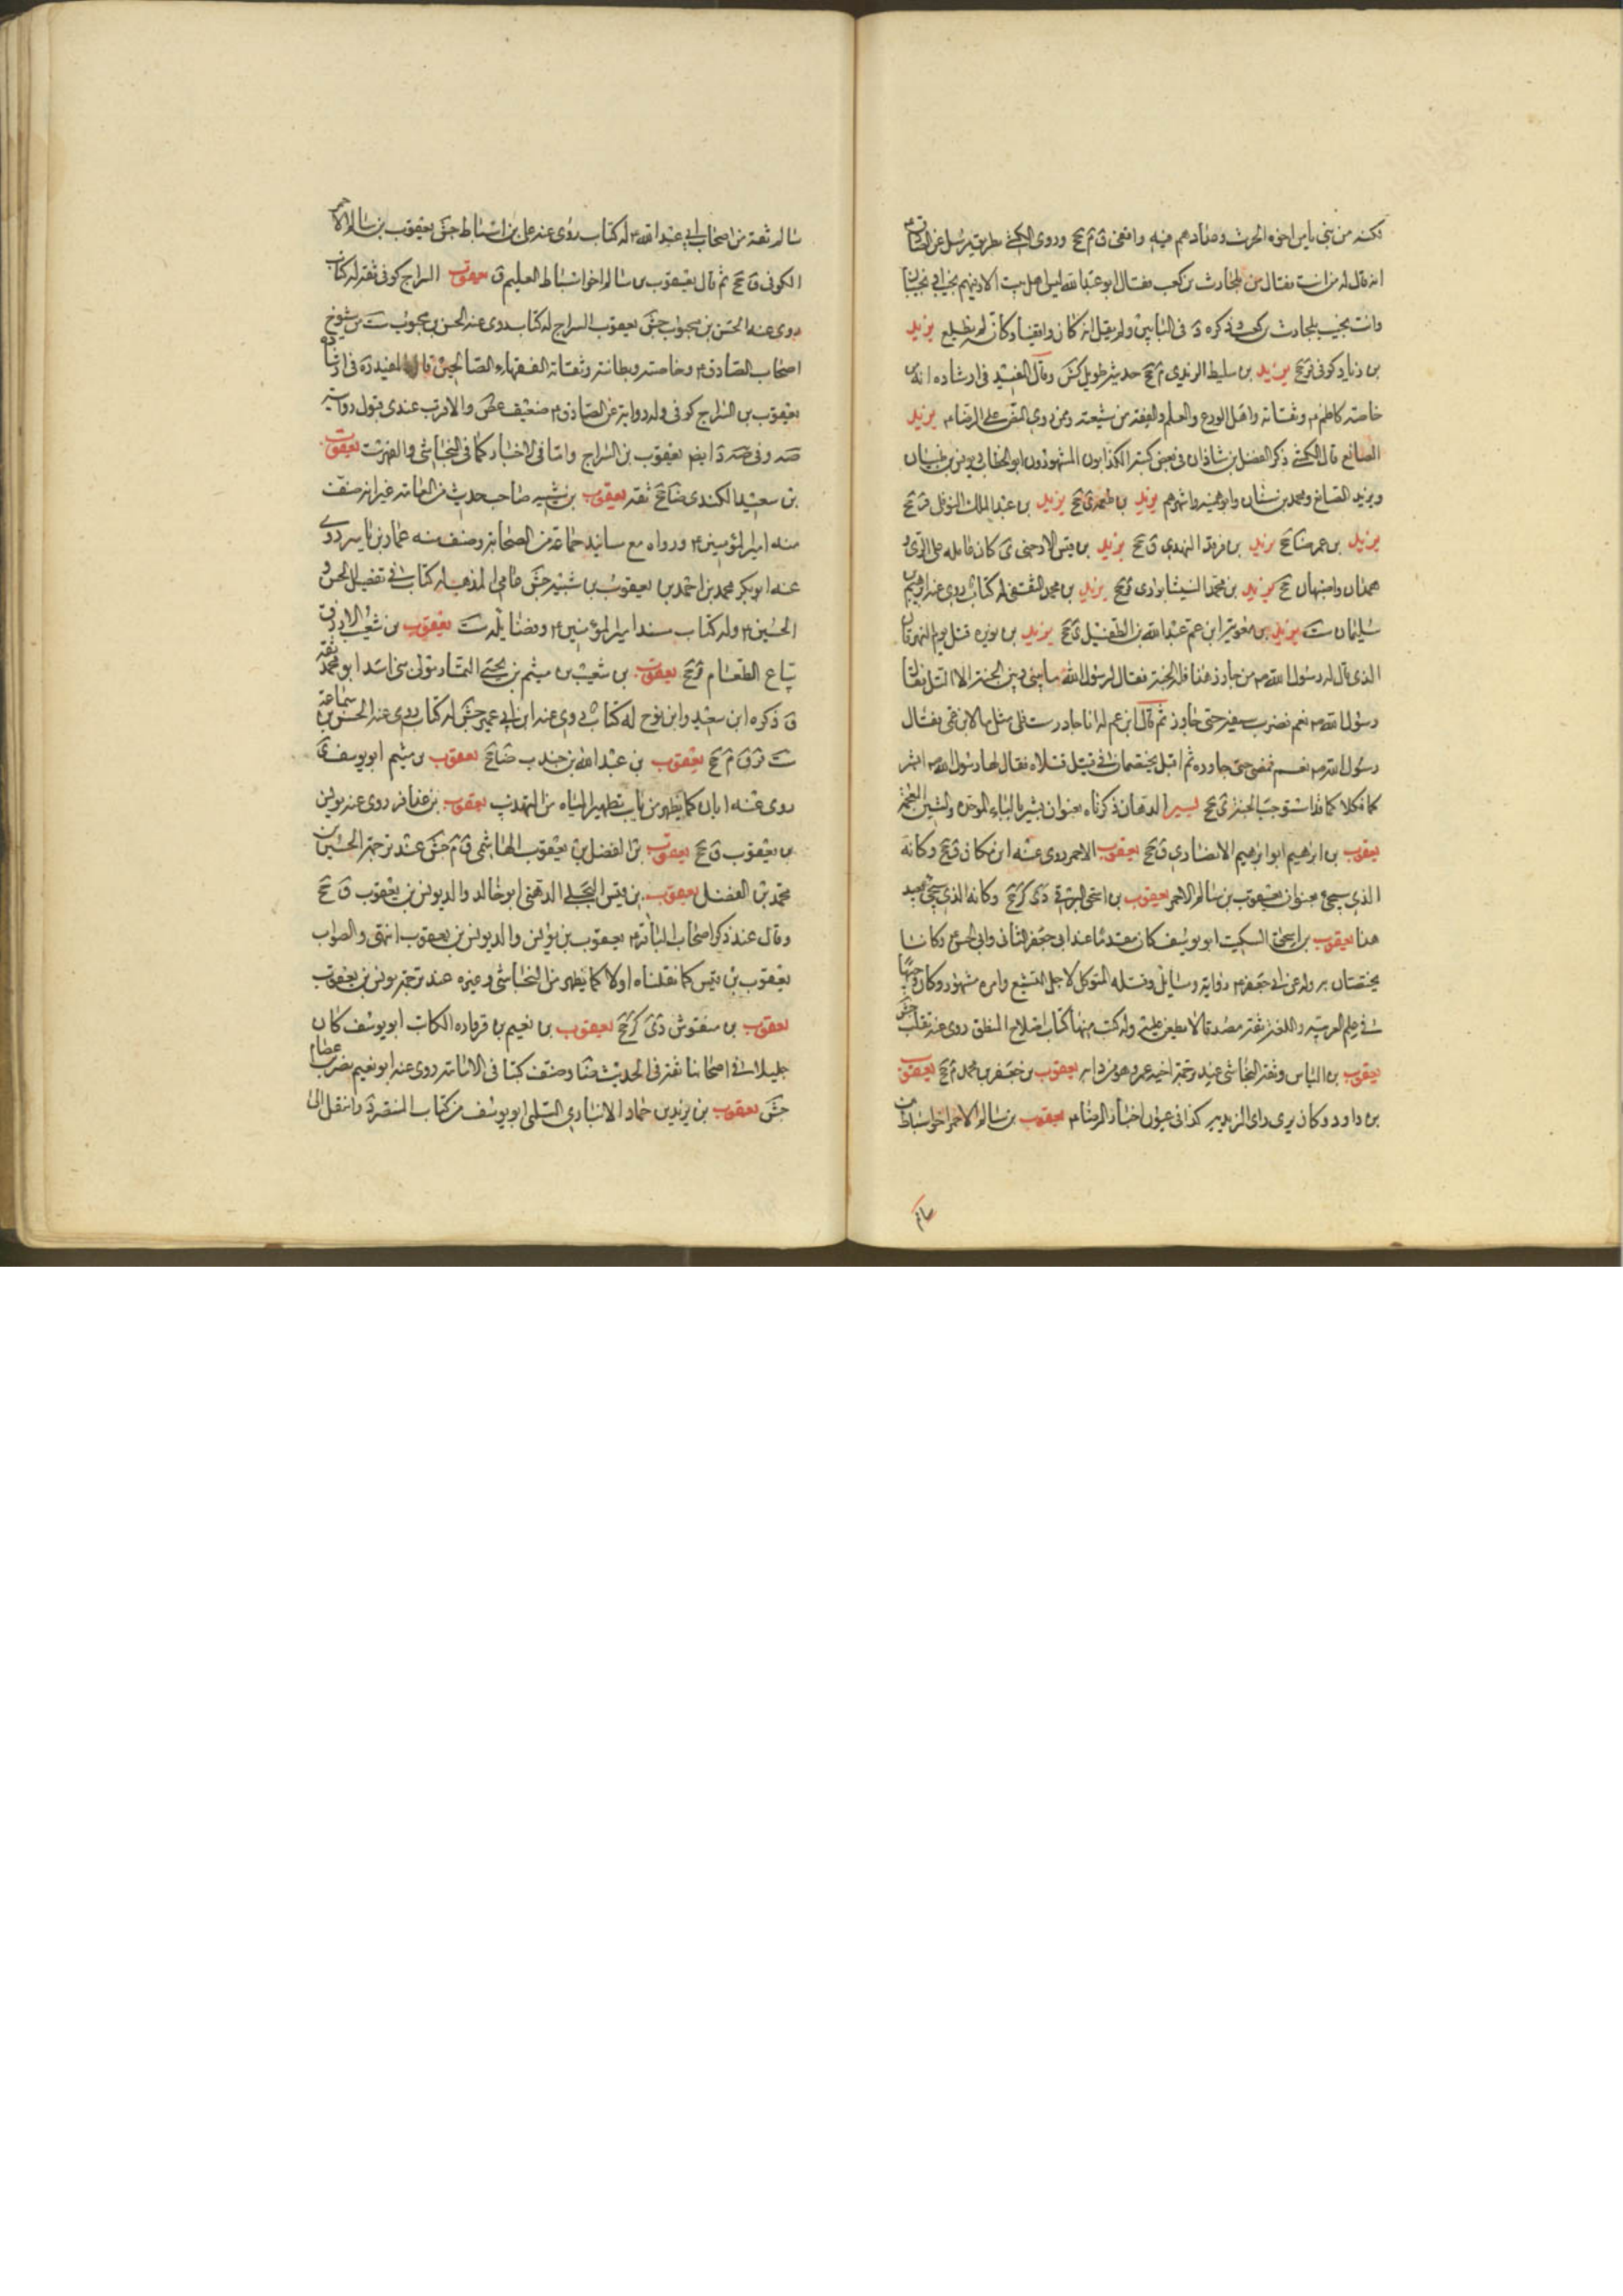 انه قال له من انت فقال من بلحارث بن كعب فقال ابو عبد الله ليس اهل بيت الا وفيهم نجيب او نجيبان
وانت نجيب بلحارث بن كعب وذكره فى الثانى ولم يقل انه كان واقفيا وكانه لم يطلع يزيد
بن زياد كوفى ق جخ يزيد بن سليط الزيدى م جخ حديثه طويل كش وقال المفيد فى ارشاده انه من
خاصة كاظم م وثقاته واهل الورع والعلم والفقه من شيعته وممن روى النص على الرضا م يزيد
الصائغ قال الكشى ذكر الفضل بن شاذان فى بعض كتبه الكذابون المشهورون ابو الخطاب ويونس بن ظبيان
ويزيد الصايغ ومحمد بن سنان وابو سمينه واشهرهم يزيد بن طعمه ى جخ يزيد بن عبد الملك النوفلى ق جخ
يزيد بن عمر ضا جخ يزيد بن فرقد النهدى ق جخ يزيد بن قيس الارحبى ى كان عامله على الرى و
همدان واصبهان جخ يزيد بن محمد النيشابورى ق جخ يزيد بن محمد الثقفى له كتاب روى عنه ابرهيم بن
سليمان ست يزيد بن معويه ابن عم عبد الله بن الطفيل ى جخ يزيد بن نويره قتل يوم النهروان
الذى قال له رسول الله ص من جاوز هذا فله الجنة فقال لرسول الله ما بينى وبين الجنة الا التل فقال
رسول الله ص نعم فضرب بسيفه حتى جاوز ثم قال ابن عم له انا جاوزت فلى مثل ما لابن عمى فقال
رسول الله ص نعم فمضى حتى جاوزه ثم اقبل يختصمان فى قتيل قتلاه فقال لهما رسول الله ص ابشر
كما فكلا كما قد استوجب الجنة ى جخ يسير الدهان ذكرناه بعنوان بشير بالباء الموحده والشين المعجمة
يعقوب بن ابرهيم ابو ابرهيم الانصارى ق جخ يعقوب الاحمر روى عنه ابن مسكان ق جخ وكانه
الذى سيجىء بعنوان يعقوب بن سالم الاحمر يعقوب بن اسحق البرقى دى كر جخ وكانه الذى سيجىء بعيد
هذا يعقوب بن اسحق السكيت ابو يوسف كان متقدما عند ابى جعفر الثانى وابى الحسن م وكانا
يختصانه وله عن ابى جعفر م رواية ومسايل وقتله المتوكل لاجل التشيع وامره مشهور وكان وجها
فى علم العربيه واللغه ثقة مصدقا لا يطعن عليه وله كتب منها كتاب اصلاح المنطق روى عنه ثعلب جش
يعقوب بن الياس وثقه النجاشى عند ترجمة اخيه عمرو وهو من دابه يعقوب بن جعفر بن محمد م جخ يعقوب
بن داود وكان يرى راى الزيديه كذا فى عيون اخبار الرضا م يعقوب بن سالم الاحمر اخو اسباط بن
سالم
سالم ثقة من اصحاب ابى عبد الله م له كتاب روى عنه على بن اسباط جش يعقوب بن سالم الاحمر
الكوفى ق جخ ثم قال يعقوب بن سالم اخو اسباط العليم ق يعقوب السراج كوفى ثقه له كتاب
روى عنه الحسن بن محبوب جش يعقوب السراج له كتاب روى عنه الحسن بن محبوب ست من شيوخ
اصحاب الصادق م وخاصته وبطانته وثقاته الفقهاء الصالحين قاله المفيد ره فى ارشاده
يعقوب بن السراج كوفى وله رواية عن الصادق م ضعيف غض والاقرب عندى قبول روايته
صه وفى ضه د ايضا يعقوب بن السراج واما فى الاخبار كما فى النجاشى والفهرست يعقوب
بن سعيد الكندى ضا جخ ثقة يعقوب بن شيبه صاحب حديث من العامه غير انه صنف
مسند امير المؤمنين م ورواه مع مسانيد جماعة من الصحابة وصنف مسند عمار بن ياسر روى
عنه ابو بكر محمد بن احمد بن يعقوب بن شيبه جش عامى المذهب له كتاب فى تفضيل الحسن و
الحسين م وله كتاب مسند امير المؤمنين م وفضايله ست يعقوب بن شعيب الازرق
بياع الطعام ق جخ يعقوب بن شعيب بن ميثم بن يحيى التمار مولى بنى اسد ابو محمد ثقة
ق ذكره ابن سعيد وابن نوح له كتاب روى عنه ابن ابى عمير جش له كتاب روى عنه الحسن بن سماعة
ست قر ق م جخ يعقوب بن عبد الله بن جندب ضا جخ يعقوب بن ميثم ابو يوسف
روى عنه ابان كما يظهر من باب تطهير المياه من التهذيب يعقوب بن عذافر روى عنه يونس
بن يعقوب ق جخ يعقوب بن الفضل بن يعقوب الهاشمى ق م جش عند ترجمة الحسين بن
محمد بن الفضل يعقوب بن قيس البجلى الدهنى ابو خالد والد يونس بن يعقوب ق جخ
وقال عند ذكر اصحاب الباقر م يعقوب بن يونس والد يونس بن يعقوب انتهى والصواب
يعقوب بن قيس كما نقلناه اولا كما يظهر من النجاشى وغيره عند ترجمة يونس بن يعقوب
يعقوب بن منقوش دى كر جخ يعقوب بن نعيم بن قرقاره الكاتب ابو يوسف كان
جليلا فى اصحابنا ثقة فى الحديث ضا وصنف كتابا فى الامامه روى عنه ابو نعيم نصر بن عصام
جش يعقوب بن يزيد بن حماد الانبارى السلمى ابو يوسف من كتاب المنتصر د وانتقل الى